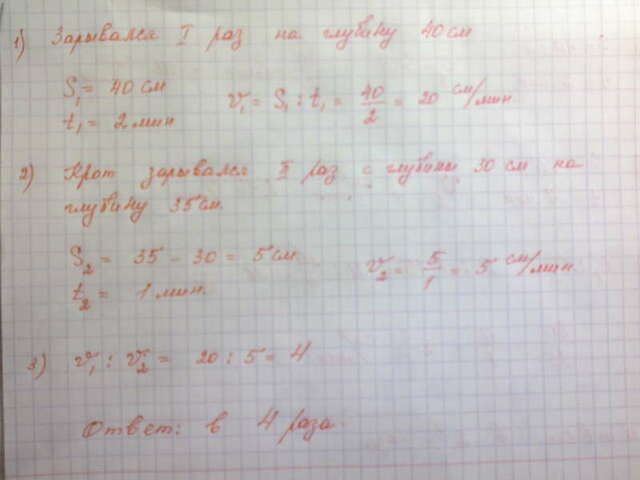 1) Зарывался I раз на глубину 40 см
S₁ = 40 см
t₁ = 2 мин
v₁ = S₁ : t₁ = 40/2 = 20 см/мин.
2) Крот зарывался II раз с глубины 30 см на
глубину 35 см.
S₂ = 35 - 30 = 5 см
t₂ = 1 мин.
v₂ = 5/1 = 5 см/мин.
3) v₁ : v₂ = 20 : 5 = 4
Ответ: в 4 раза.